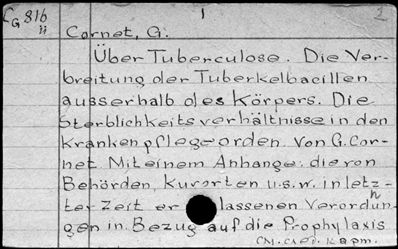 1 2
CG 816
ii
Cornet, G.
Über Tuberculose. Die Ver-
breitung der Tuberkelbacillen
ausserhalb des Körpers. Die
Sterblichkeitsverhältnisse in den
Krankenpflegeorden. Von G. Cor-
net. Mit einem Anhange: die von
Behörden, Kurorten u.s.w. in letz-
ter Zeit er lassenen Verordnun-
gen in Bezug auf die Prophylaxis